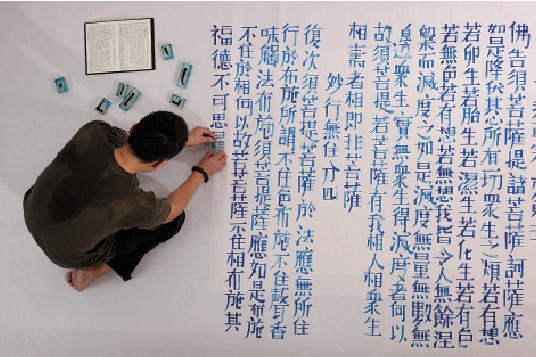 佛告須菩提諸菩薩訶薩應
如是降伏其心所有一切眾生之類若有想
若卵生若胎生若濕生若化生若有色
若無色若有想若無想我皆令入無餘涅
槃而滅度之如是滅度無量無數無
邊眾生實無眾生得滅度者何以
故須菩提若菩薩有我相人相眾生
相壽者相即非菩薩
妙行無住分四
復次須菩提菩薩於法應無所住
行於布施所謂不住色布施不住聲香
味觸法布施須菩提菩薩應如是布施
不住於相何以故若菩薩不住相布施其
福德不可思